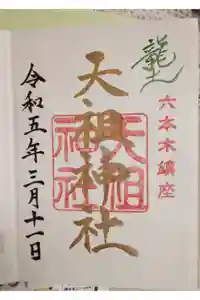 龍土
六本木鎮座
天祖神社
天祖神社
令和五年三月十一日